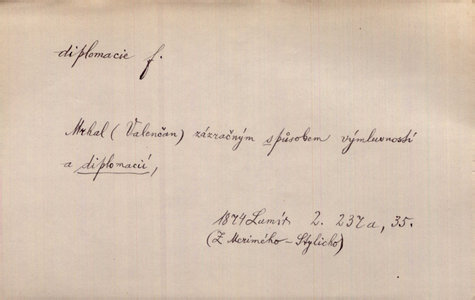 diplomacie f.
Mrhal (Valenčan) zázračným spůsobem výmluvností
a diplomacií,
1874 Lumír 2. 237a, 35.
(Z Meriméko - Stylicho)